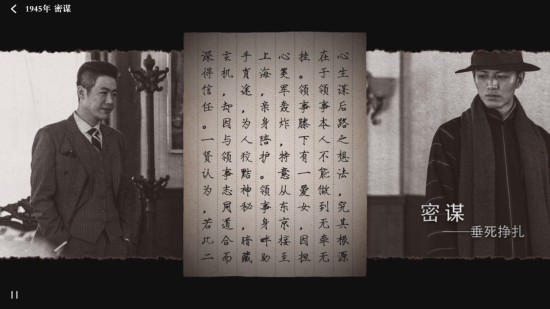 1945年 密谋
心生谋后路之想法，究其根源
在于领事本人不能做到无牵无
挂。领事膝下有一爱女，因担
心美军轰炸，特意从东京接至
上海，亲身陪护。领事身畔助
手途，为人狡黠神秘，暗藏
玄机，却因与领事志同道合而
深得信任。一贤认为，若此二
密谋
——垂死挣扎